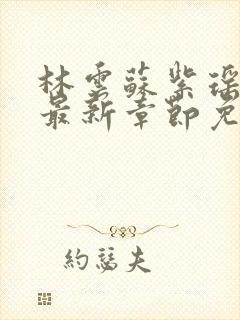 林雲蘇紫瑶
最新章節免
約瑟夫